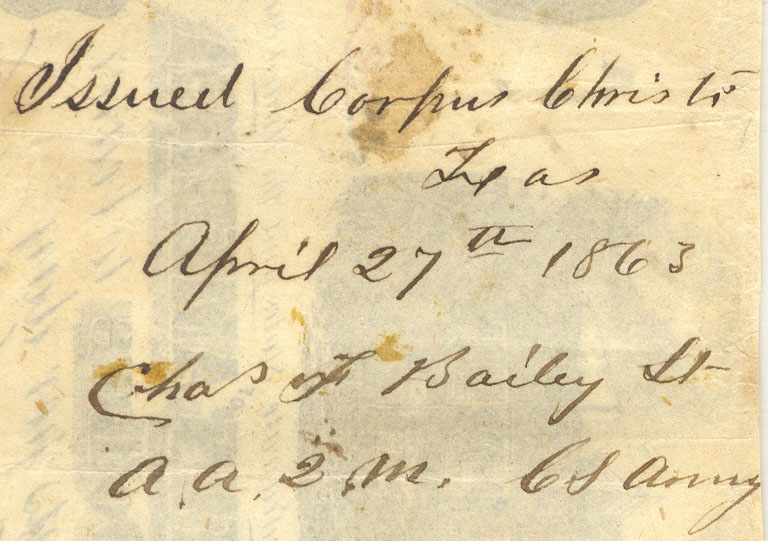 Issued Corpus Christi
Texas
April 27th 1863
Chas F Bailey Lt
A. A. Q. M. CS Army